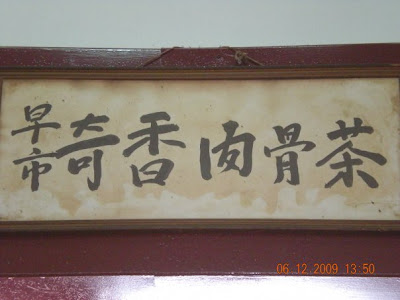 早市奇香肉骨茶
06.12.2009 13:50